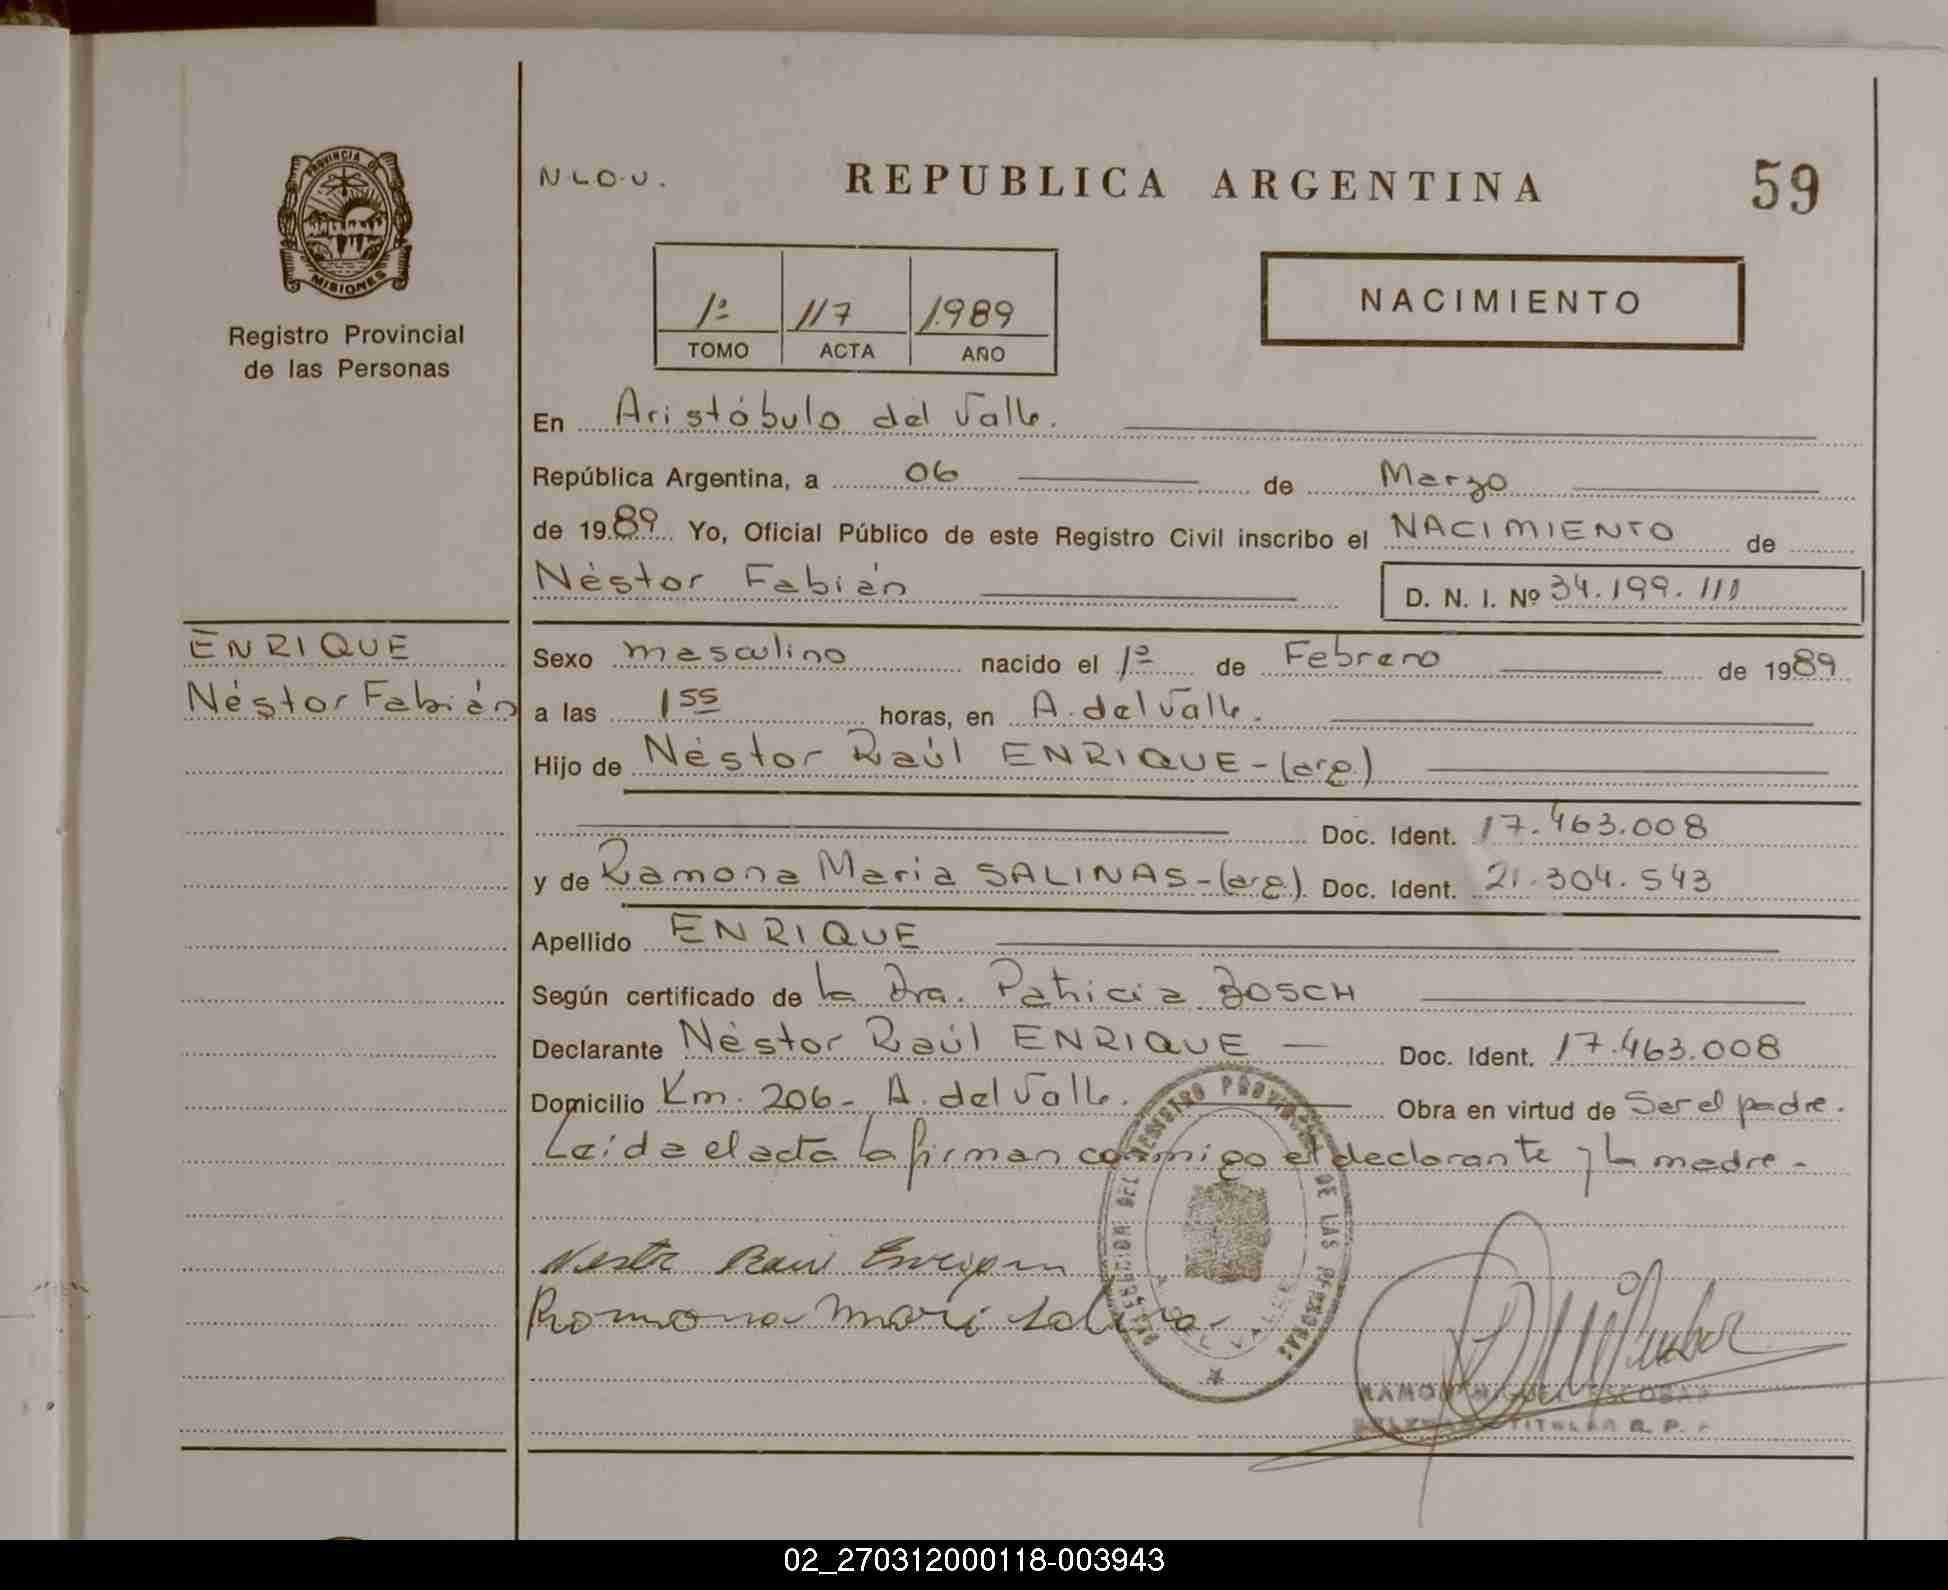 PROVINCIA DE
MISIONES
Registro Provincial
de las Personas
N.L.O.U.
REPUBLICA ARGENTINA
59
1º 117 1.989
TOMO ACTA AÑO
NACIMIENTO
En Aristóbulo del Valle.
República Argentina, a 06 de Marzo
de 1989 Yo, Oficial Público de este Registro Civil inscribo el NACIMIENTO de
Néstor Fabián D. N. I. Nº 34.199.111
ENRIQUE
Néstor Fabián
Sexo masculino nacido el 1º de Febrero de 1989
a las 1 55 horas, en A. del Valle.
Hijo de Néstor Raúl ENRIQUE-(arg.)
Doc. Ident. 17.463.008
y de Ramona Maria SALINAS-(arg.) Doc. Ident. 21.304.543
Apellido ENRIQUE
Según certificado de la Dra. Patricia BOSCH
Declarante Néstor Raúl ENRIQUE — Doc. Ident. 17.463.008
Domicilio Km. 206- A. del Valle. Obra en virtud de Ser el padre.
Leída el acta la firman conmigo el declarante y la madre-
Nestor Raul Enrique
Ramona Mari Salina
DEL REGISTRO PROVINCIAL DE LAS PERSONAS
RAMON MIGUEL ESCOBAR
TITULAR R. P.
02_270312000118-003943